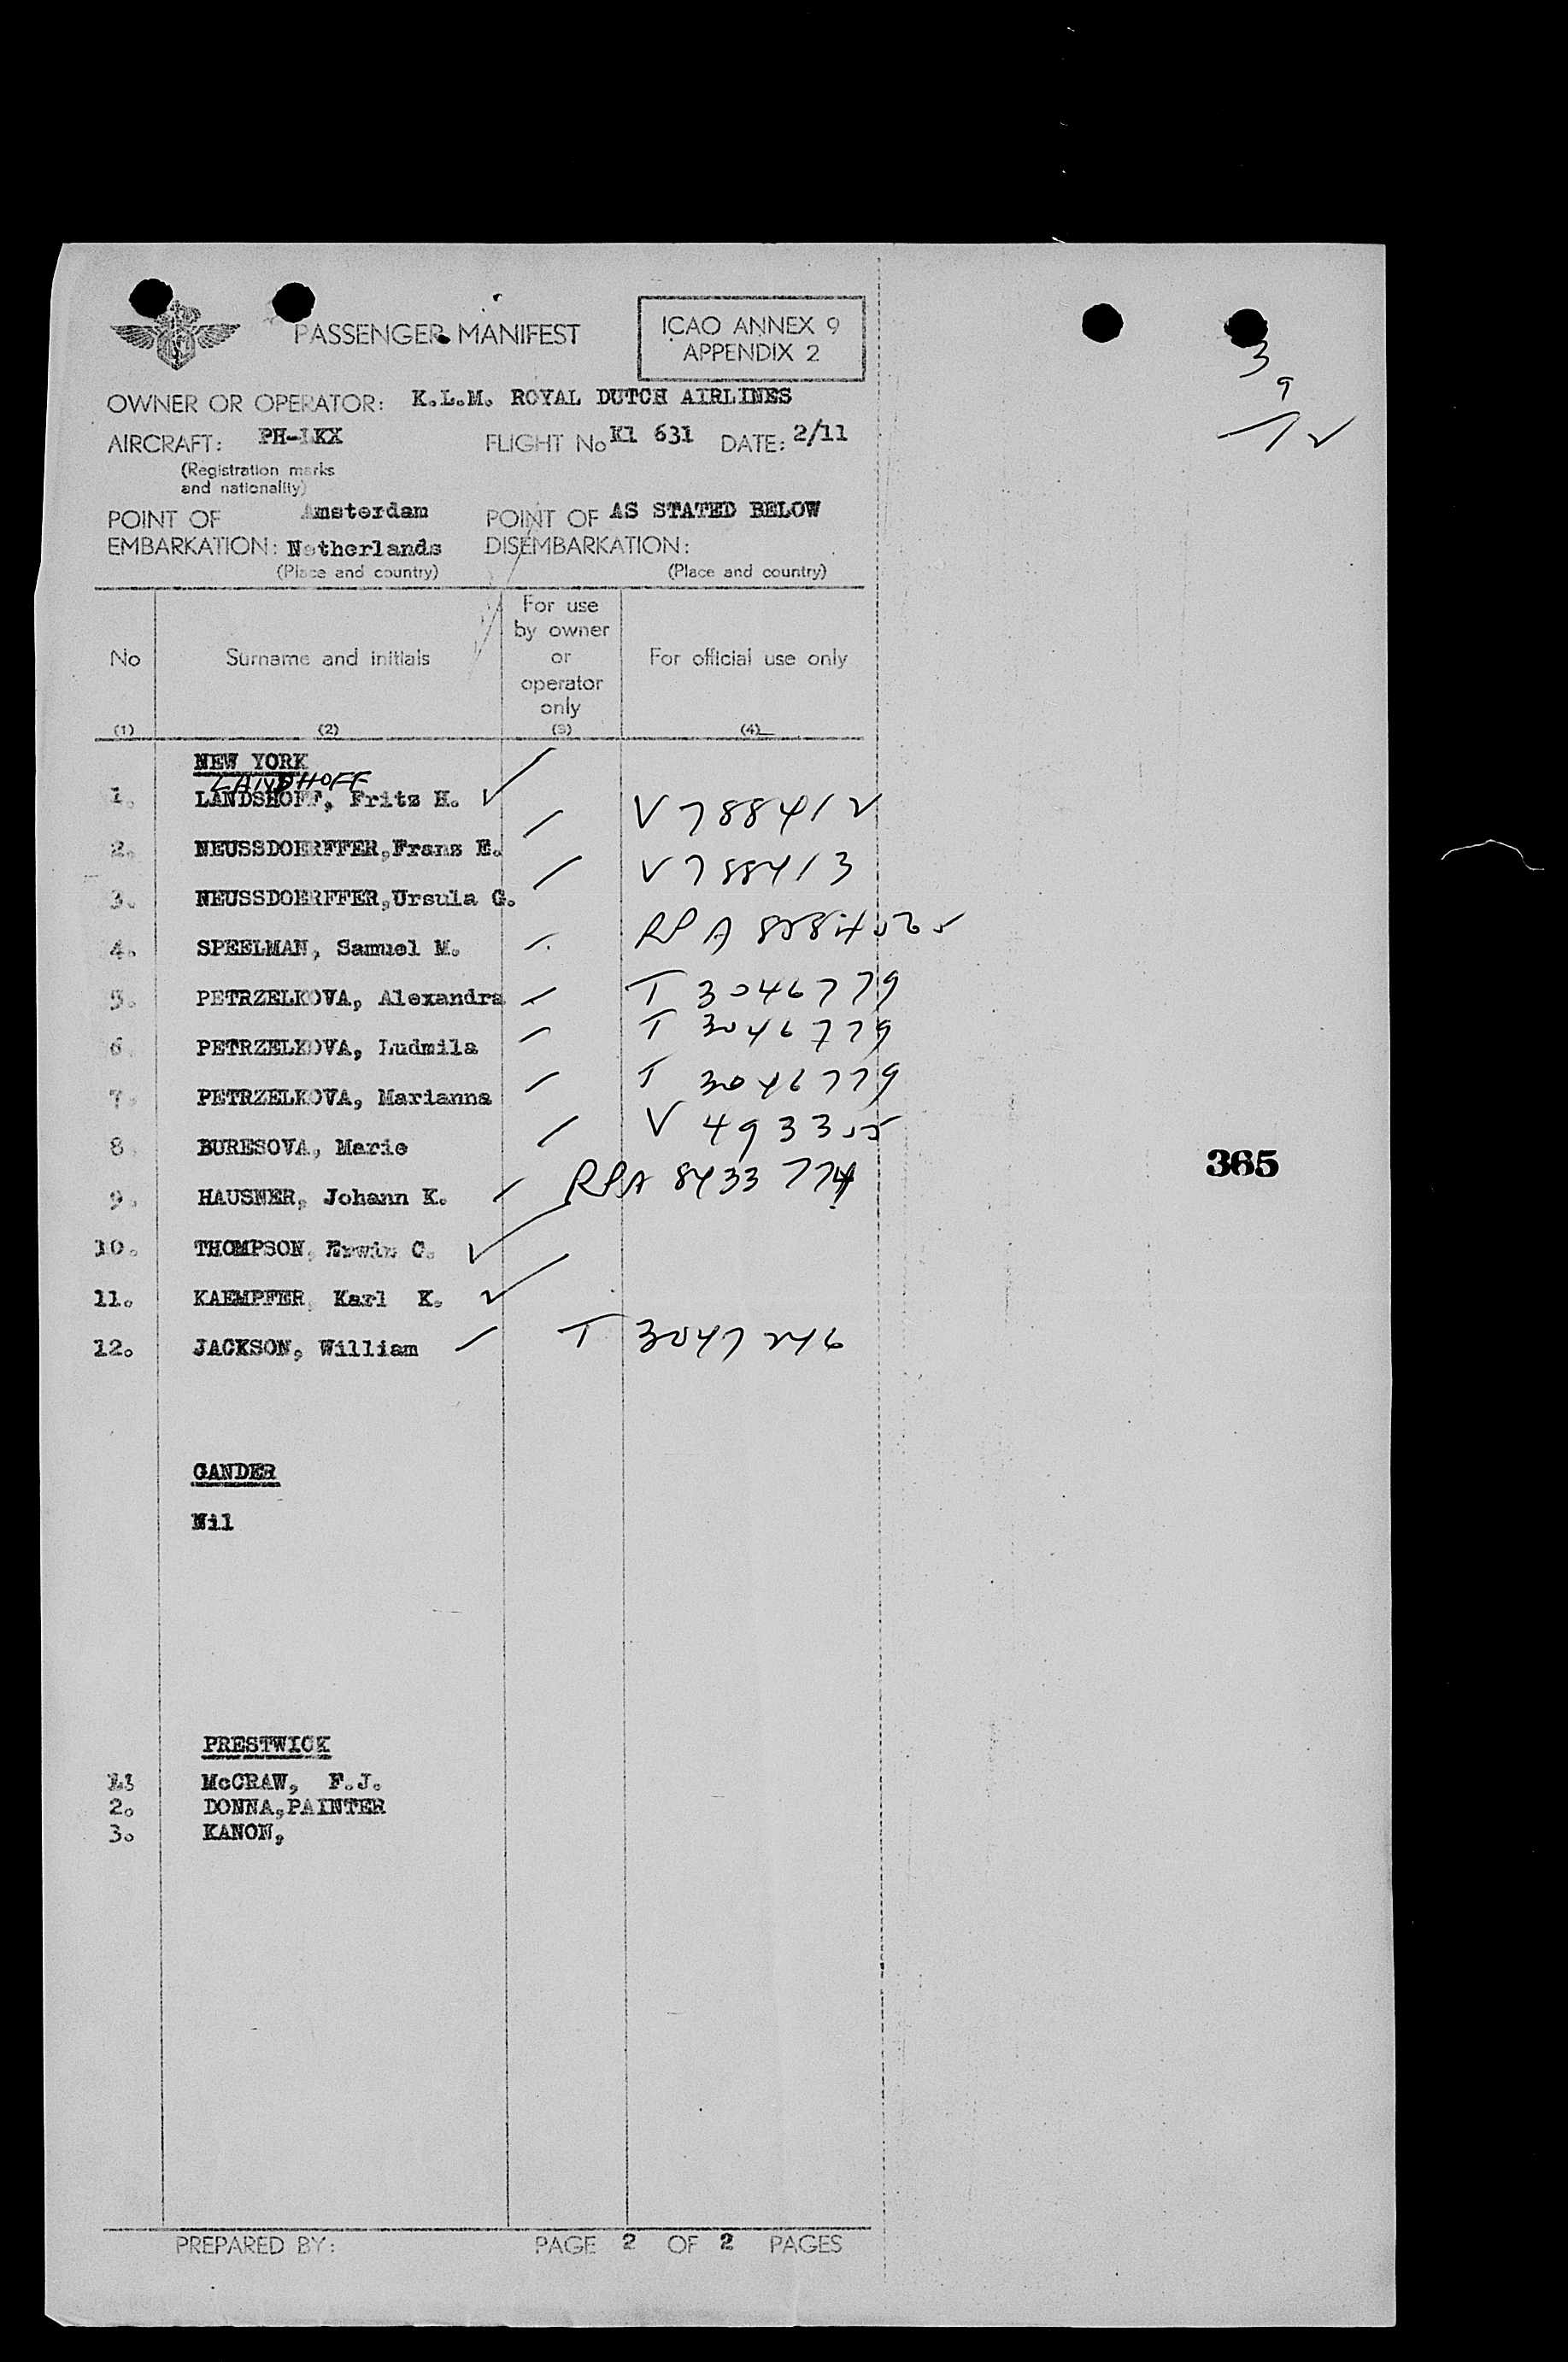 PASSENGER MANIFEST
ICAO ANNEX 9
APPENDIX 2
3
9
12
OWNER OR OPERATOR: K.L.M. ROYAL DUTCH AIRLINES
AIRCRAFT: PH-LKX FLIGHT No Kl 631 DATE: 2/11
(Registration marks
and nationality)
POINT OF Amsterdam POINT OF AS STATED BELOW
EMBARKATION: Netherlands DISEMBARKATION:
(Place and country) (Place and country)
No Surname and initials For use by owner or operator only For official use only
(1) (2) (3) (4)
NEW YORK
LANDSHOFF
1. LANDSHOFF, Fritz H.
2. NEUSSDOERFFER, Franz E. V 788412
3. NEUSSDOERFFER, Ursula G. V 788413
4. SPEELMAN, Samuel M. RPA
5. PETRZELKOVA, Alexandra T 3046779
6. PETRZELKOVA, Ludmila T 3046779
7. PETRZELKOVA, Marianna T 3046779
8. BURESOVA, Marie V 493355
9. HAUSNER, Johann K. RPA 8433774
10. THOMPSON, Erwin C.
11. KAEMPFER, Karl K.
12. JACKSON, William T 3047246
365
GANDER
Nil
PRESTWICK
McCRAW, F.J.
2. DONNA, PAINTER
3. KANON,
PREPARED BY: PAGE 2 OF 2 PAGES